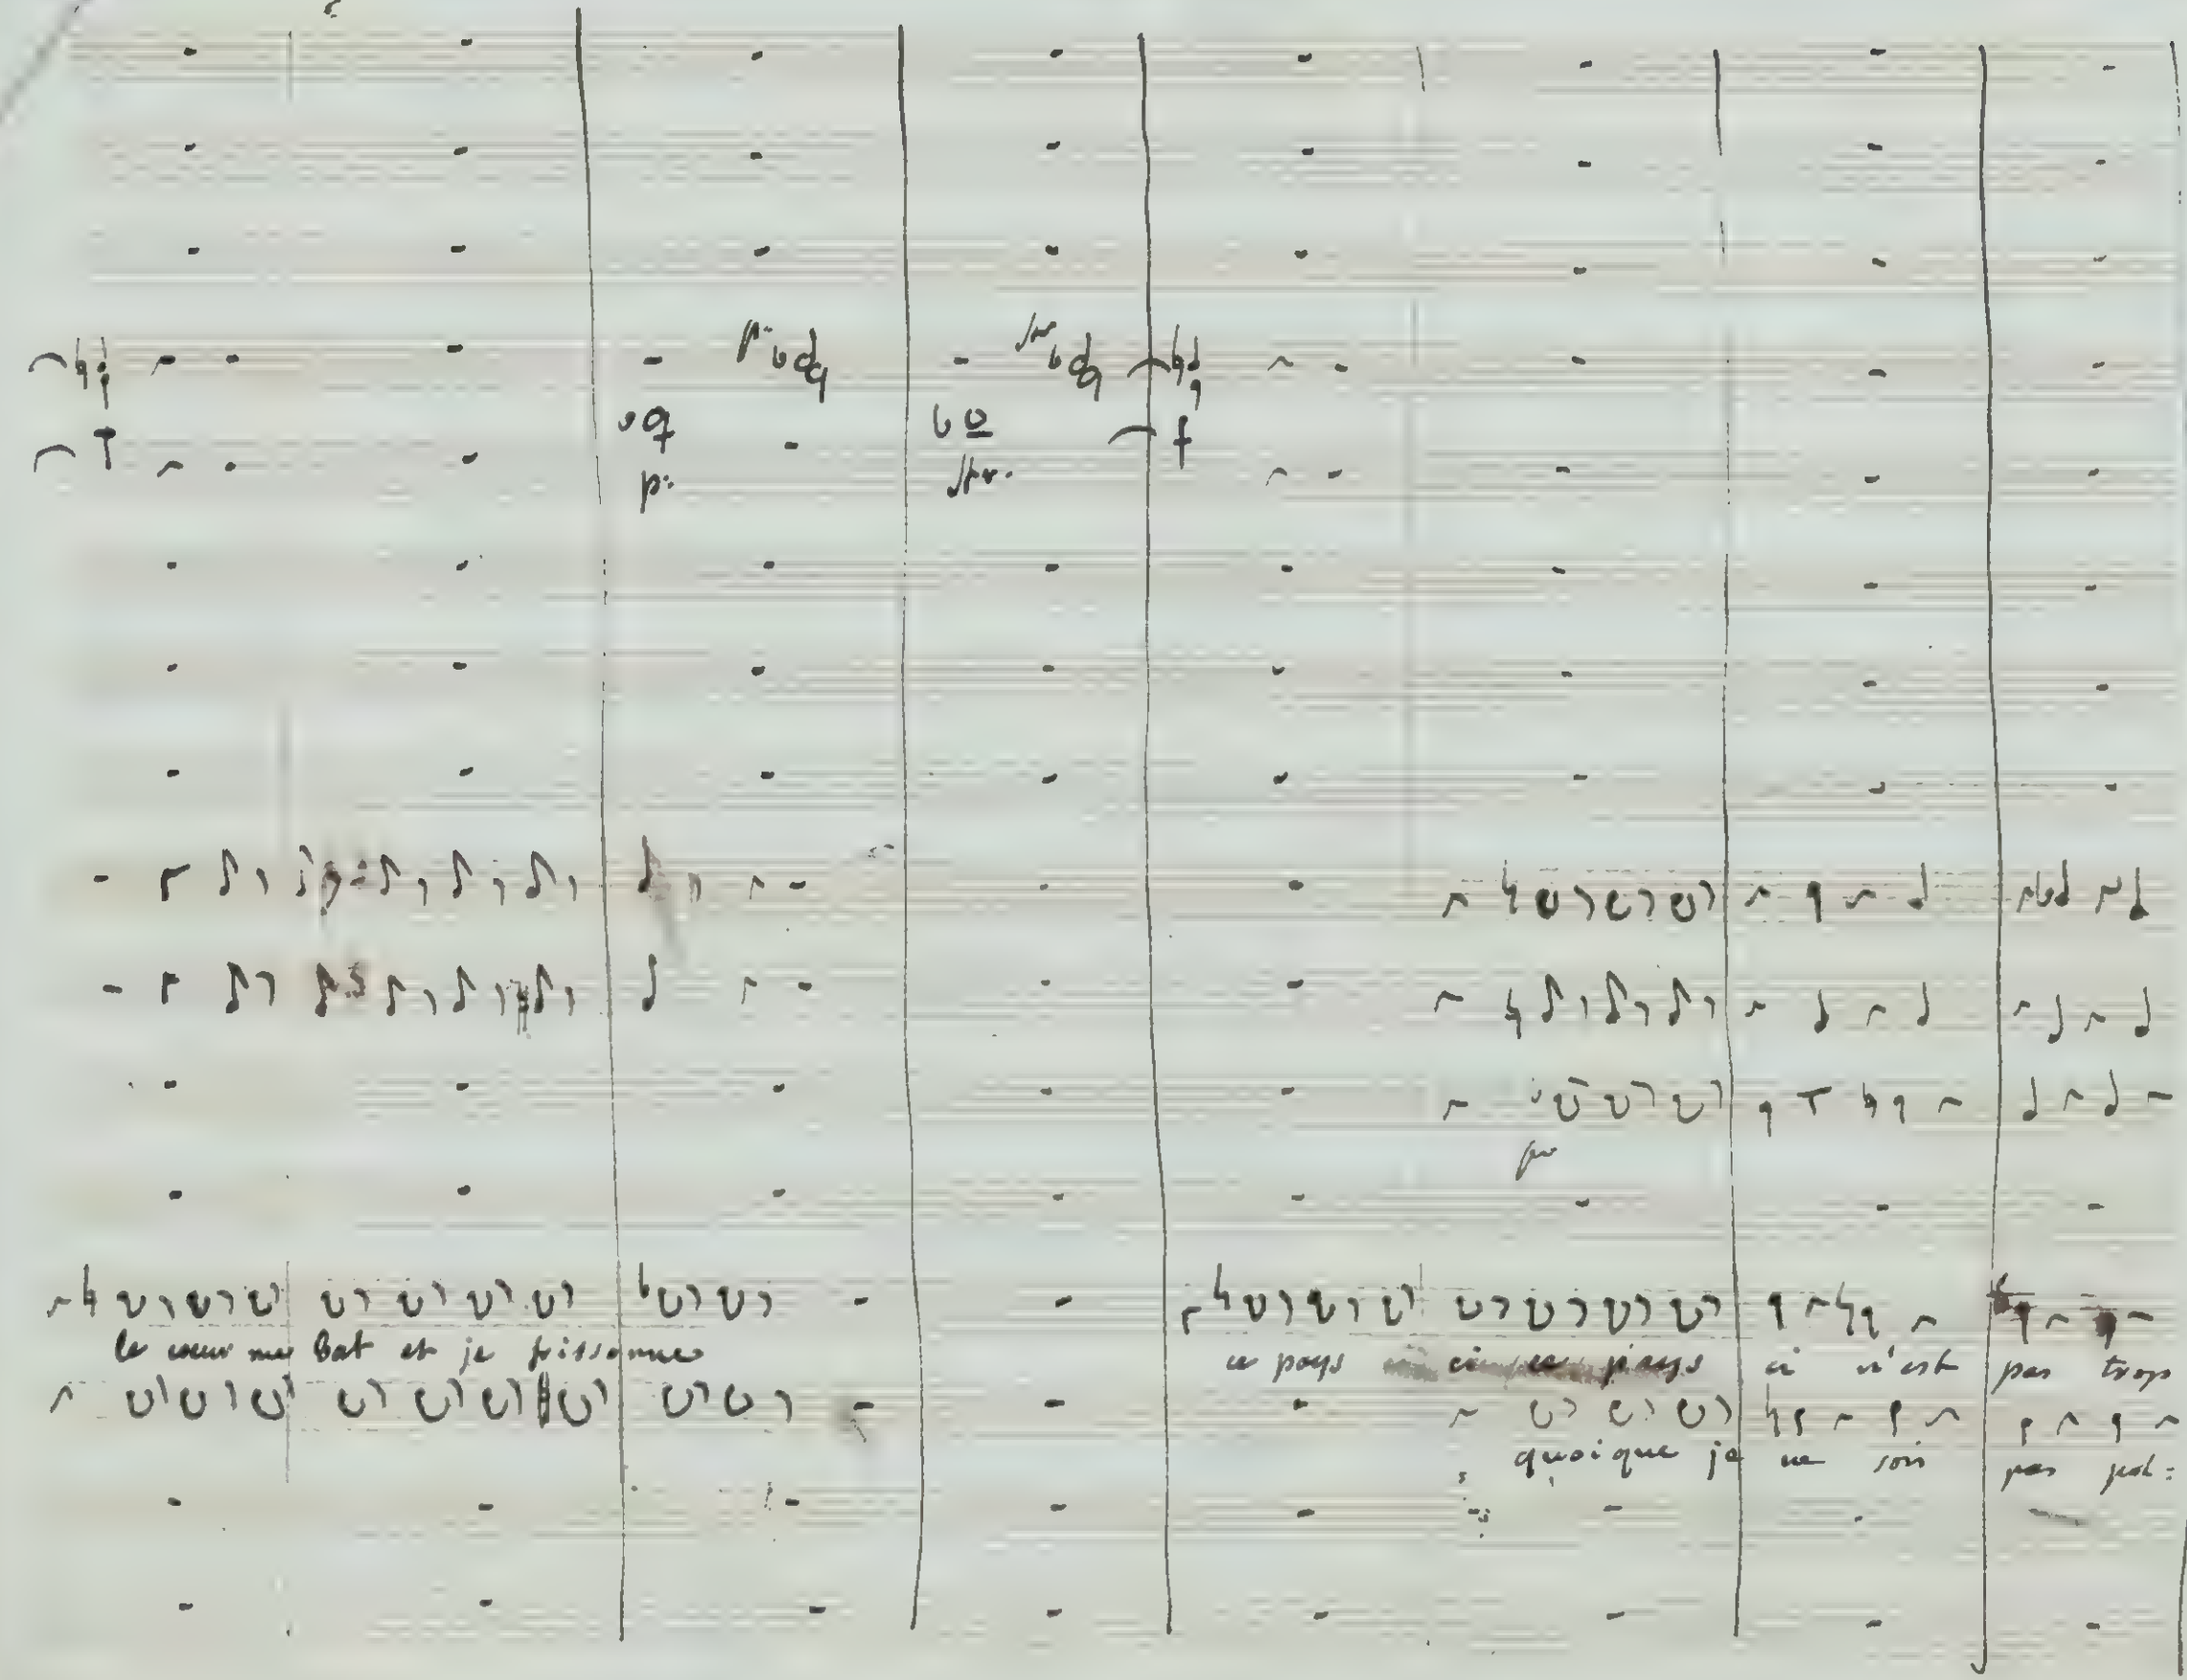 p:
p:
le cœur me bat et je frissonne
ce pays ci ce pays ci n'est pas trop
quoique je ne sois pas pol=